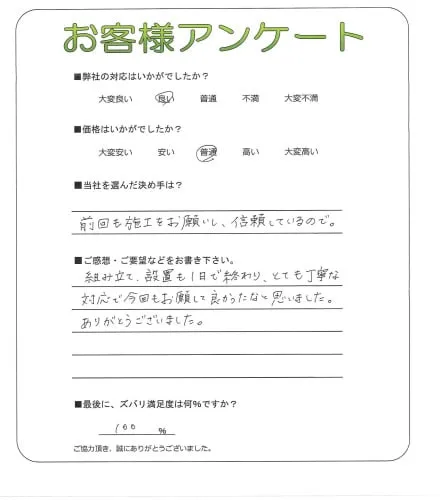 お客様アンケート
■弊社の対応はいかがでしたか？
大変良い 良い 普通 不満 大変不満
■価格はいかがでしたか？
大変安い 安い 普通 高い 大変高い
■当社を選んだ決め手は？
前回も施工をお願いし、信頼しているので。
■ご感想・ご要望などをお書き下さい。
組み立て、設置も1日で終わり、とても丁寧な
対応で今回もお願いして良かったなと思いました。
ありがとうございました。
■最後に、ズバリ満足度は何%ですか？
100 %
ご協力頂き、誠にありがとうございました。